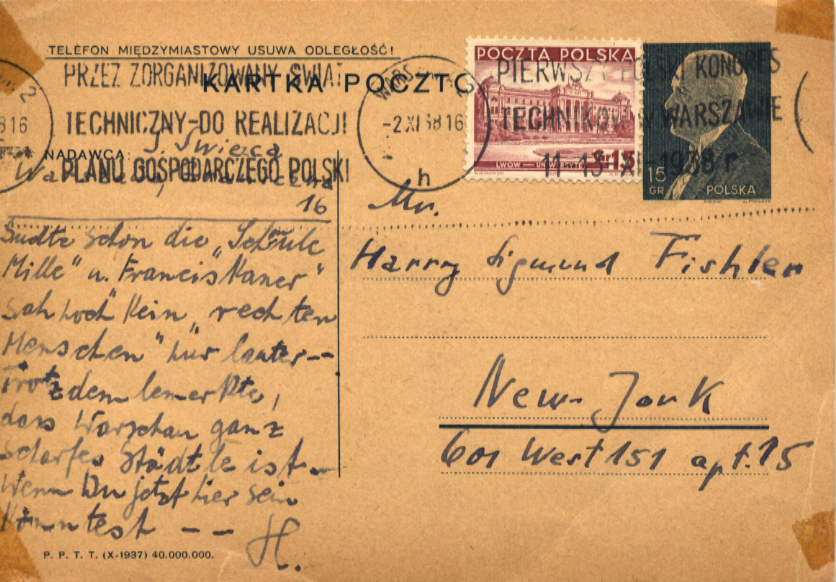 TELEFON MIĘDZYMIASTOWY USUWA ODLEGŁOŚĆ!
KARTKA POCZTO
PRZEZ ZORGANIZOWANY ŚWIAT
TECHNICZNY-DO REALIZACJI
PLANU GOSPODARCZEGO POLSKI
2
38 16
-2.XI 38 16
h
POCZTA POLSKA
LWÓW - UNIWERSYTET
15
15
GR
POLSKA
PIERWSZY POLSKI KONGRES
TECHNIKÓW W WARSZAWIE
11-13 XI-1938 r
NADAWCA:
S. Święca
16
schon die "Schule
Mille" u. Franciskaner"
Sah noch kein "rechten
Menschen" nur lauter --
Trotzdem bemerkte,
dass Warschau ganz
scharfes Städtle ist --
Wenn Du jetzt hier sein
könntest -- H.
Mr.
Harry Sigmund Fishler
New-York
601 West 151 apt. 15
P. P. T. T. (X-1937) 40.000.000.